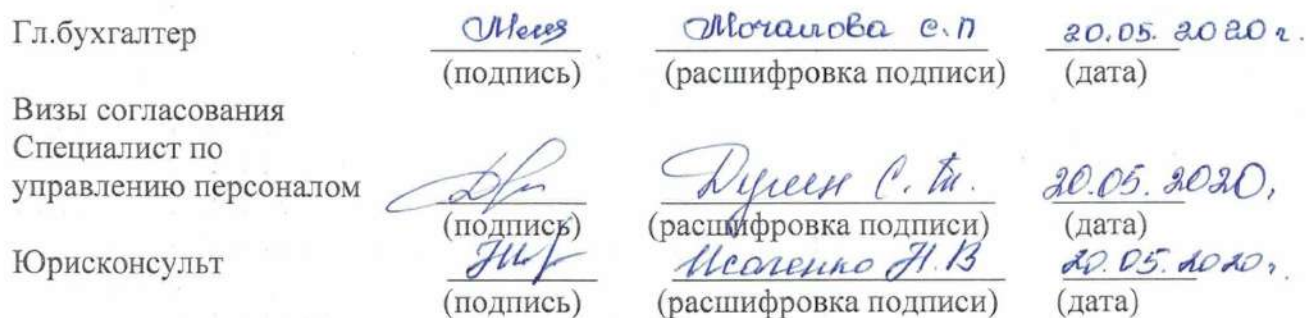 Гл.бухгалтер Мочалова С.П 20.05.2020 г.
(подпись) (расшифровка подписи) (дата)
Визы согласования
Специалист по
управлению персоналом С. 20.05.2020,
(подпись) (расшифровка подписи) (дата)
Юрисконсульт Н.В 20.05.2020г.
(подпись) (расшифровка подписи) (дата)